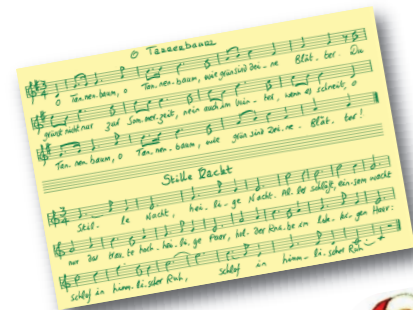 O Tannenbaum
O Tan-nen-baum, o Tan-nen-baum, wie grün sind dei-ne Blät-ter. Du
grünst nicht nur zur Som-mer-zeit, nein auch im Win-ter, wenn es schneit, o
Tan-nen-baum, o Tan-nen-baum, wie grün sind dei-ne Blät-ter!
Stille Nacht
Stil-le Nacht, hei-li-ge Nacht. Al-les schläft, ein-sam wacht
nur das hoch-hei-li-ge Paar, hol-der Kna-be im lok-ki-gen Haar:
schlaf in himm-li-scher Ruh, schlaf in himm-li-scher Ruh